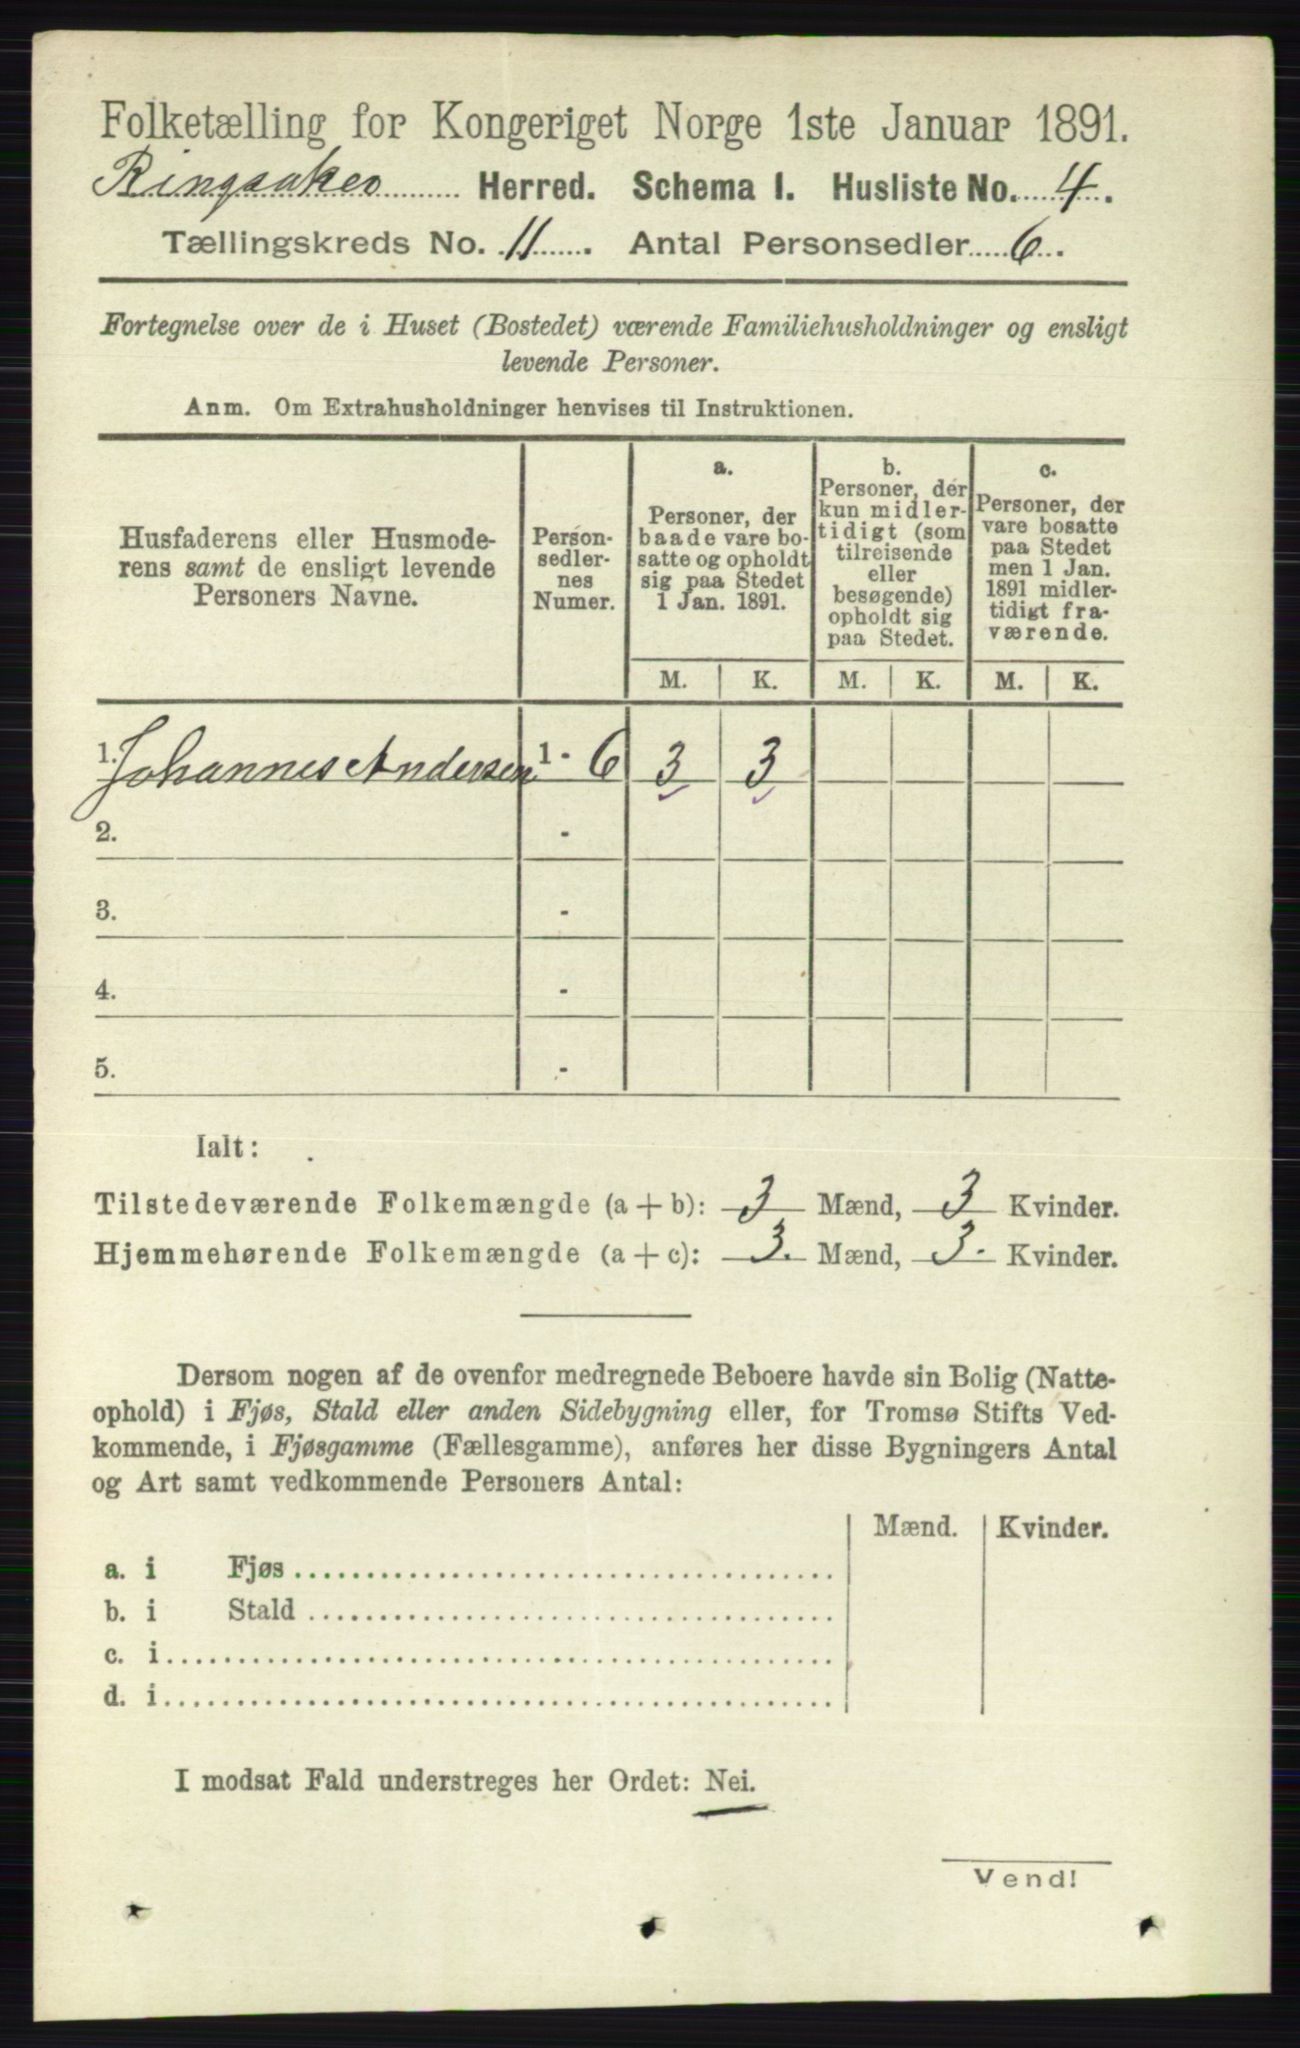 Folketælling for Kongeriget Norge 1ste Januar 1891.
Ringsaker Herred. Schema I. Husliste No. 4.
Tællingskreds No. 11. Antal Personsedler 6.
Fortegnelse over de i Huset (Bostedet) værende Familiehusholdninger og ensligt
levende Personer.
Anm. Om Extrahusholdninger henvises til Instruktionen.
Husfaderens eller Husmode-
rens samt de ensligt levende
Personers Navne.
Person-
sedler-
nes
Numer.
a.
Personer, der
baade vare bo-
satte og opholdt
sig paa Stedet
1 Jan. 1891.
b.
Personer, der
kun midler-
tidigt (som
tilreisende
eller
besøgende)
opholdt sig
paa Stedet.
c.
Personer, der
vare bosatte
paa Stedet
men 1 Jan.
1891 midler-
tidigt fra-
værende.
M. K. M. K. M. K.
1. Johannes Andersen 1 - 6 3 3
2. -
3. -
4. -
5. -
Ialt:
Tilstedeværende Folkemængde (a + b): 3 Mænd, 3 Kvinder.
Hjemmehørende Folkemængde (a + c): 3. Mænd, 3. Kvinder.
Dersom nogen af de ovenfor medregnede Beboere havde sin Bolig (Natte-
ophold) i Fjøs, Stald eller anden Sidebygning eller, for Tromsø Stifts Ved-
kommende, i Fjøsgamme (Fællesgamme), anføres her disse Bygningers Antal
og Art samt vedkommende Personers Antal:
Mænd. Kvinder.
a. i Fjøs
b. i Stald
c. i
d. i
I modsat Fald understreges her Ordet: Nei.
Vend!